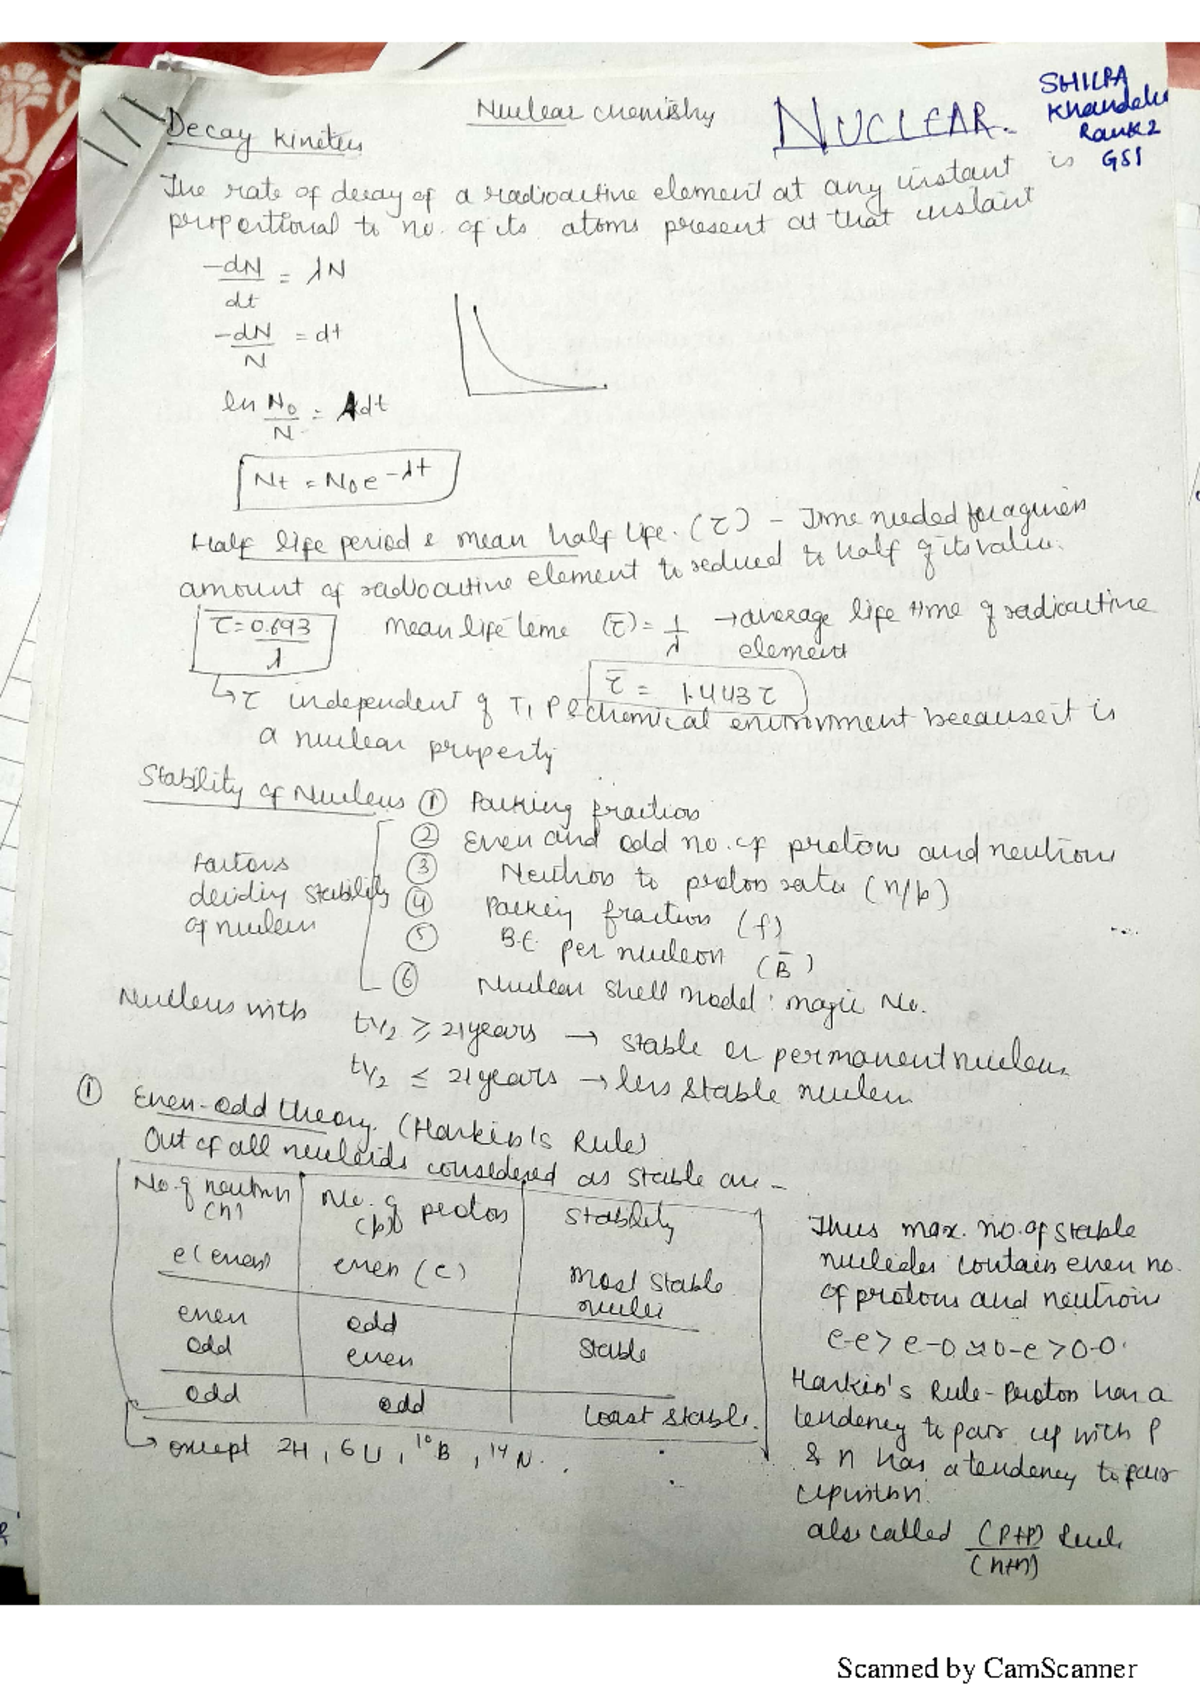 Nuclear chemistry
NUCLEAR.
SHILPA
Khandelu
Rank 2
GSI
Decay Kinetics
The rate of decay of a radioactive element at any instant is
proportional to no. of its atoms present at that instant
-dN/dt = λN
-dN/N = dt
ln N₀/N = λdt
Nt = N₀e^-λt
Half life period & mean half life. (τ) - Time needed for a given
amount of radioactive element to reduced to half of its value.
τ = 0.693/λ
mean life time (τ̄) = 1/λ → average life time of radioactive
element
τ̄ = 1.443τ
↳ τ independent of T, P & chemical environment because it is
a nuclear property
Stability of Nucleus ① Packing fraction
② Even and odd no. of protons and neutrons
Factors
deciding stability
of nucleus
③ Neutron to proton ratio (n/p)
④ Packing fraction (f)
⑤ B.E. per nucleon (B̄)
⑥ Nuclear shell model: magic No.
Nucleus with
t1/2 ≥ 21 years → stable or permanent nucleus
t1/2 ≤ 21 years → less stable nuclei
① Even-odd theory. (Harkin's Rule)
Out of all nucleids considered as stable are -
No. of neutron (n) No. of proton (p) Stability
e(even) even (e) most stable nuclei
even odd
odd even stable
odd odd least stable.
↳ except 2H, 6U, ¹⁰B, ¹⁴N.
Thus max. no. of stable
nucleides contain even no.
of protons and neutrons
e-e > e-o ≈ o-e > o-o.
Harkin's Rule - Proton has a
tendency to pair up with P
& n has a tendency to pair
up with n.
also called (P+P)/(n+n) Rule
Scanned by CamScanner